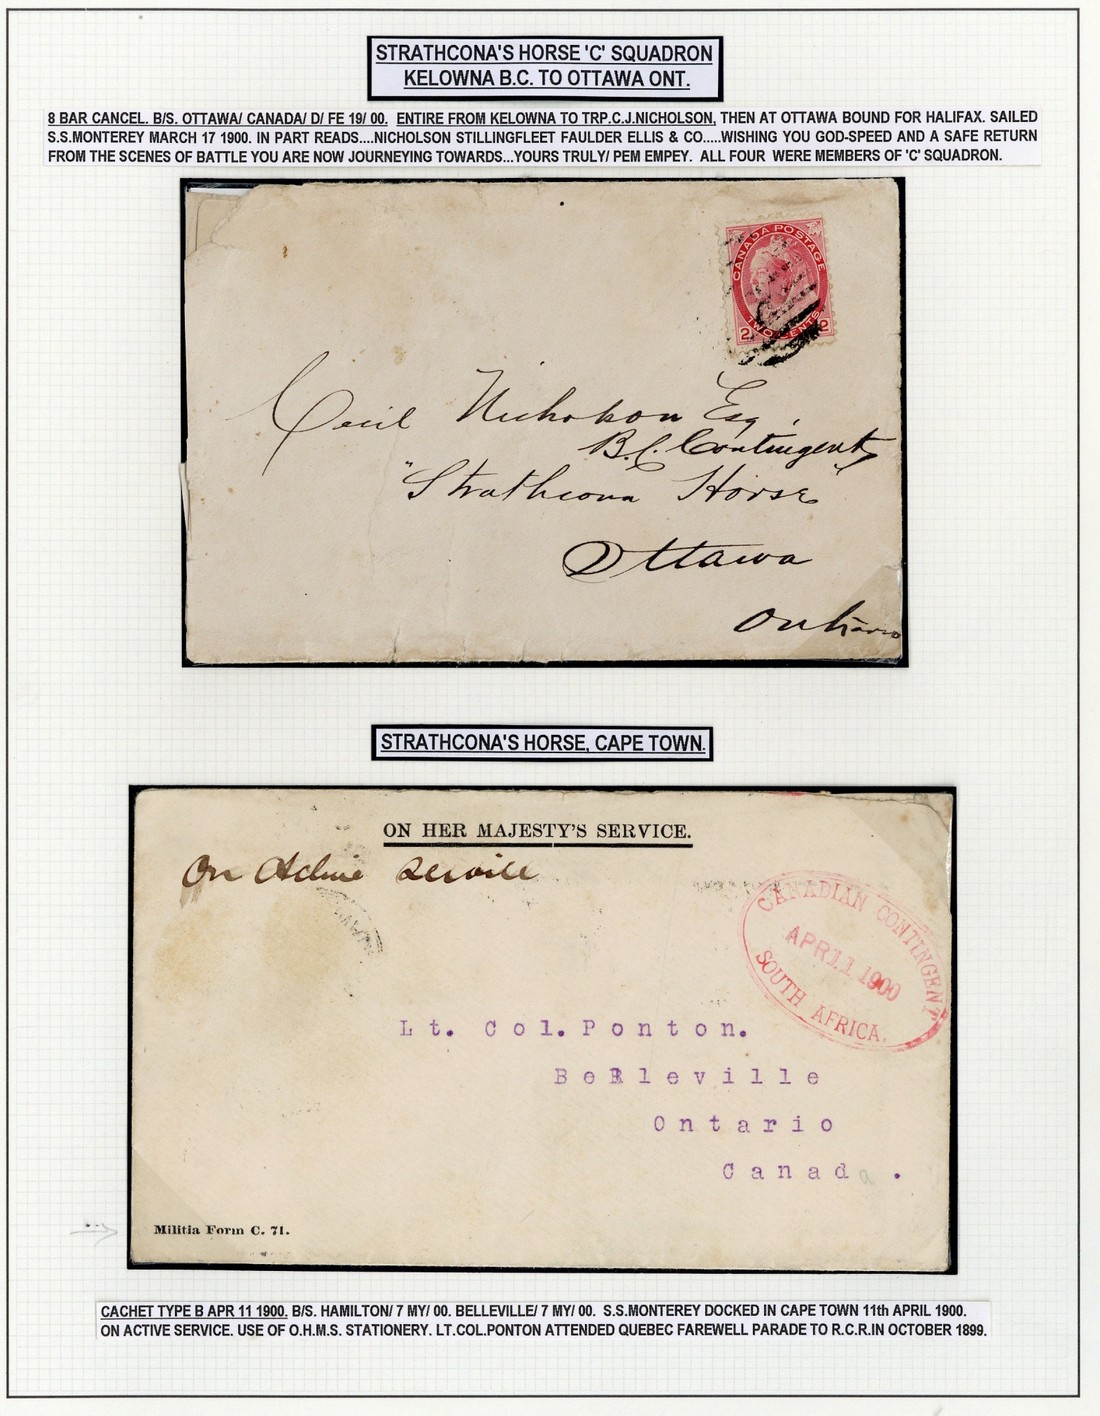 STRATHCONA'S HORSE 'C' SQUADRON
KELOWNA B.C. TO OTTAWA ONT.
8 BAR CANCEL. B/S. OTTAWA/ CANADA/ D/ FE 19/ 00. ENTIRE FROM KELOWNA TO TRP.C.J.NICHOLSON, THEN AT OTTAWA BOUND FOR HALIFAX. SAILED
S.S.MONTEREY MARCH 17 1900. IN PART READS....NICHOLSON STILLINGFLEET FAULDER ELLIS & CO.....WISHING YOU GOD-SPEED AND A SAFE RETURN
FROM THE SCENES OF BATTLE YOU ARE NOW JOURNEYING TOWARDS...YOURS TRULY/ PEM EMPEY. ALL FOUR WERE MEMBERS OF 'C' SQUADRON.
CANADA POSTAGE
2 TWO CENTS 2
Cecil Nicholson Esq.
B.C. Contingent
"Strathcona Horse"
Ottawa
Ontario
STRATHCONA'S HORSE, CAPE TOWN.
ON HER MAJESTY'S SERVICE.
On Active Service
CANADIAN CONTINGENT
APR 11 1900
SOUTH AFRICA.
Lt. Col. Ponton.
Belleville
Ontario
Canada.
Militia Form C. 71.
CACHET TYPE B APR 11 1900. B/S. HAMILTON/ 7 MY/ 00. BELLEVILLE/ 7 MY/ 00. S.S.MONTEREY DOCKED IN CAPE TOWN 11th APRIL 1900.
ON ACTIVE SERVICE. USE OF O.H.M.S. STATIONERY. LT.COL.PONTON ATTENDED QUEBEC FAREWELL PARADE TO R.C.R.IN OCTOBER 1899.